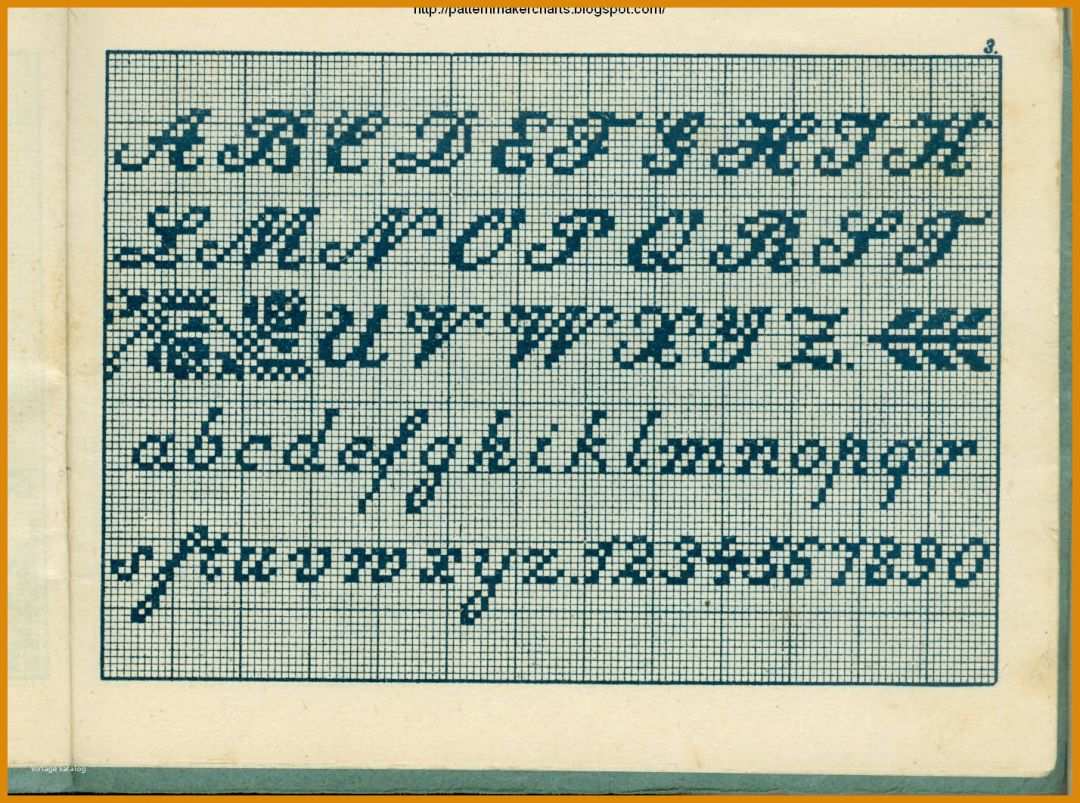 http://patternmakercharts.blogspot.com/
3.
A B C D E F G H I K
L M N O P Q R S T
U V W X Y Z.
a b c d e f g h i k l m n o p q r
s ſ t u v w x y z. 1 2 3 4 5 6 7 8 9 0
vorlage katalog